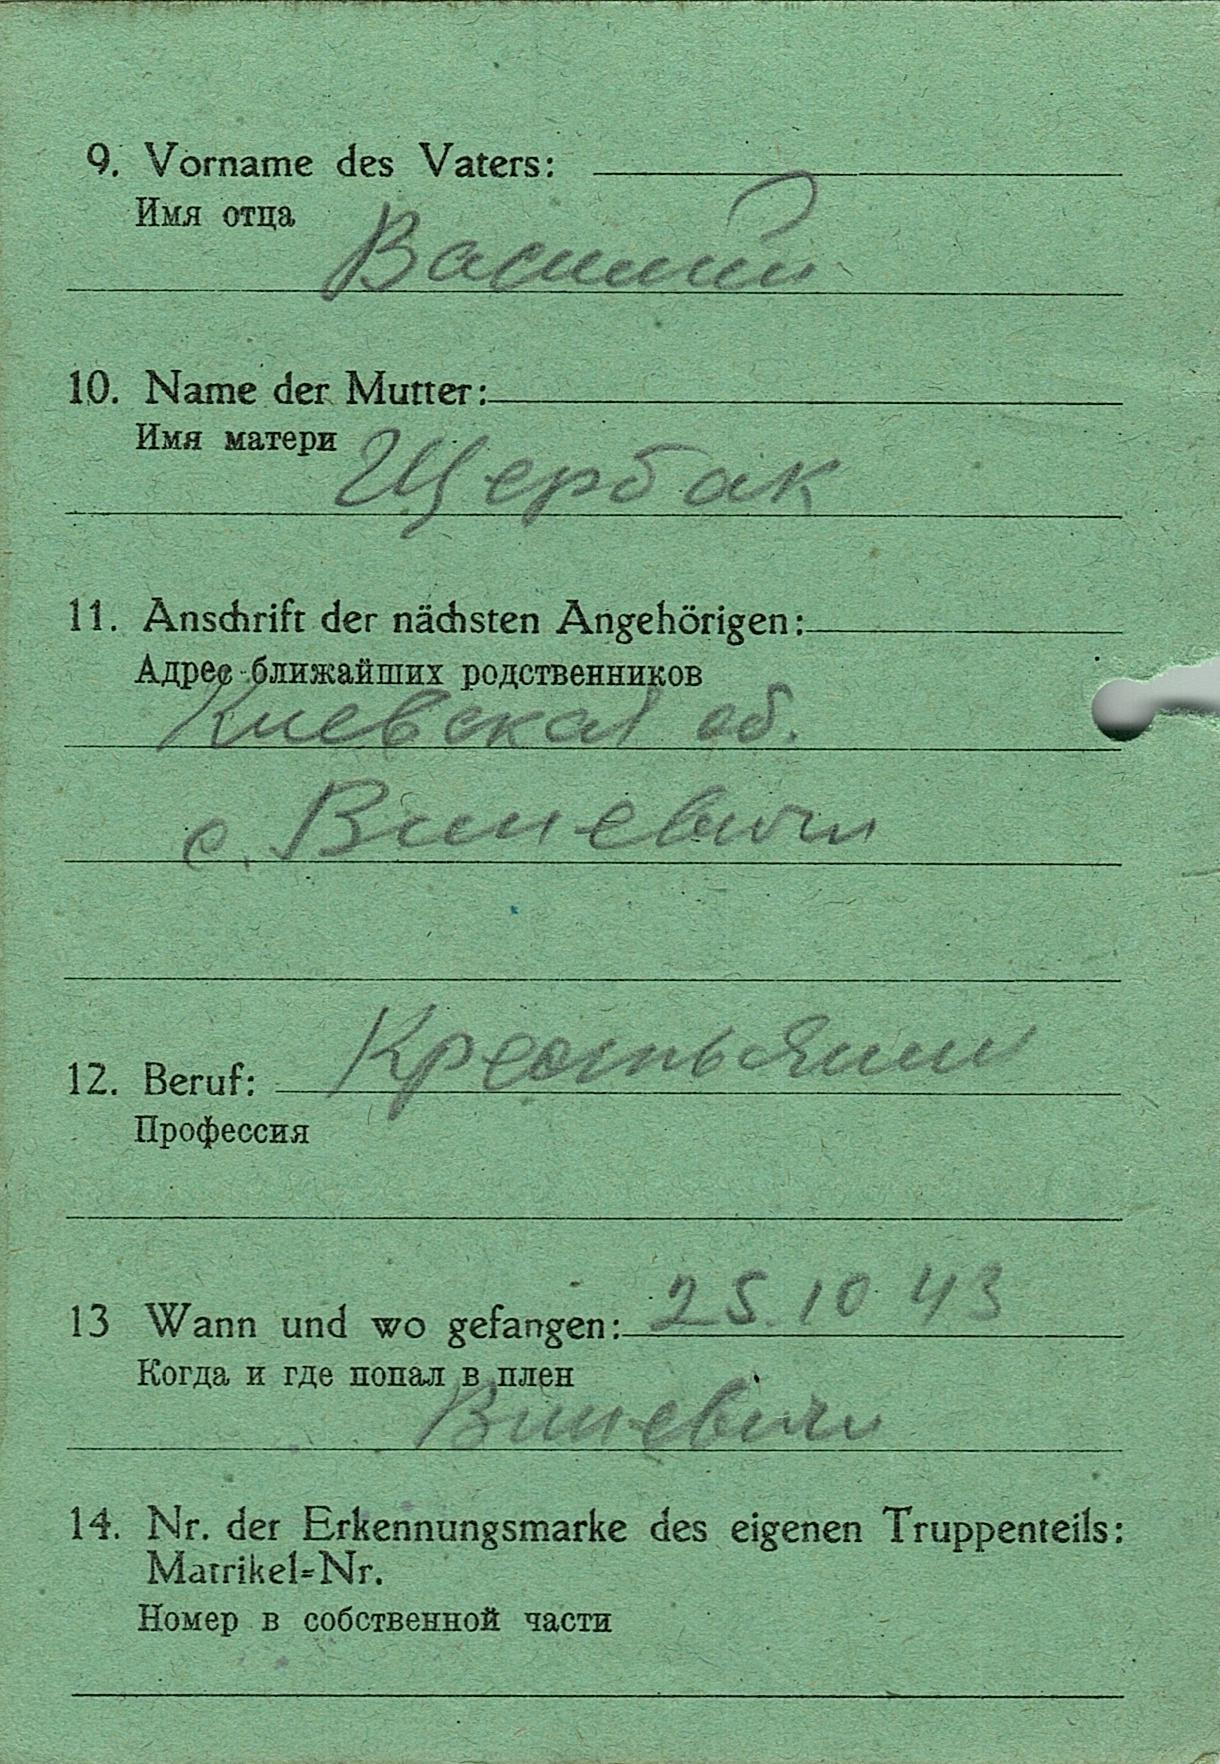 9. Vorname des Vaters:
Имя отца
Василий
10. Name der Mutter:
Имя матери
Щербак
11. Anschrift der nächsten Angehörigen:
Адрес ближайших родственников
Киевская об.
с.
Крестьянин
12. Beruf:
Профессия
25.10 43
13 Wann und wo gefangen:
Когда и где попал в плен
14. Nr. der Erkennungsmarke des eigenen Truppenteils:
Matrikel=Nr.
Номер в собственной части